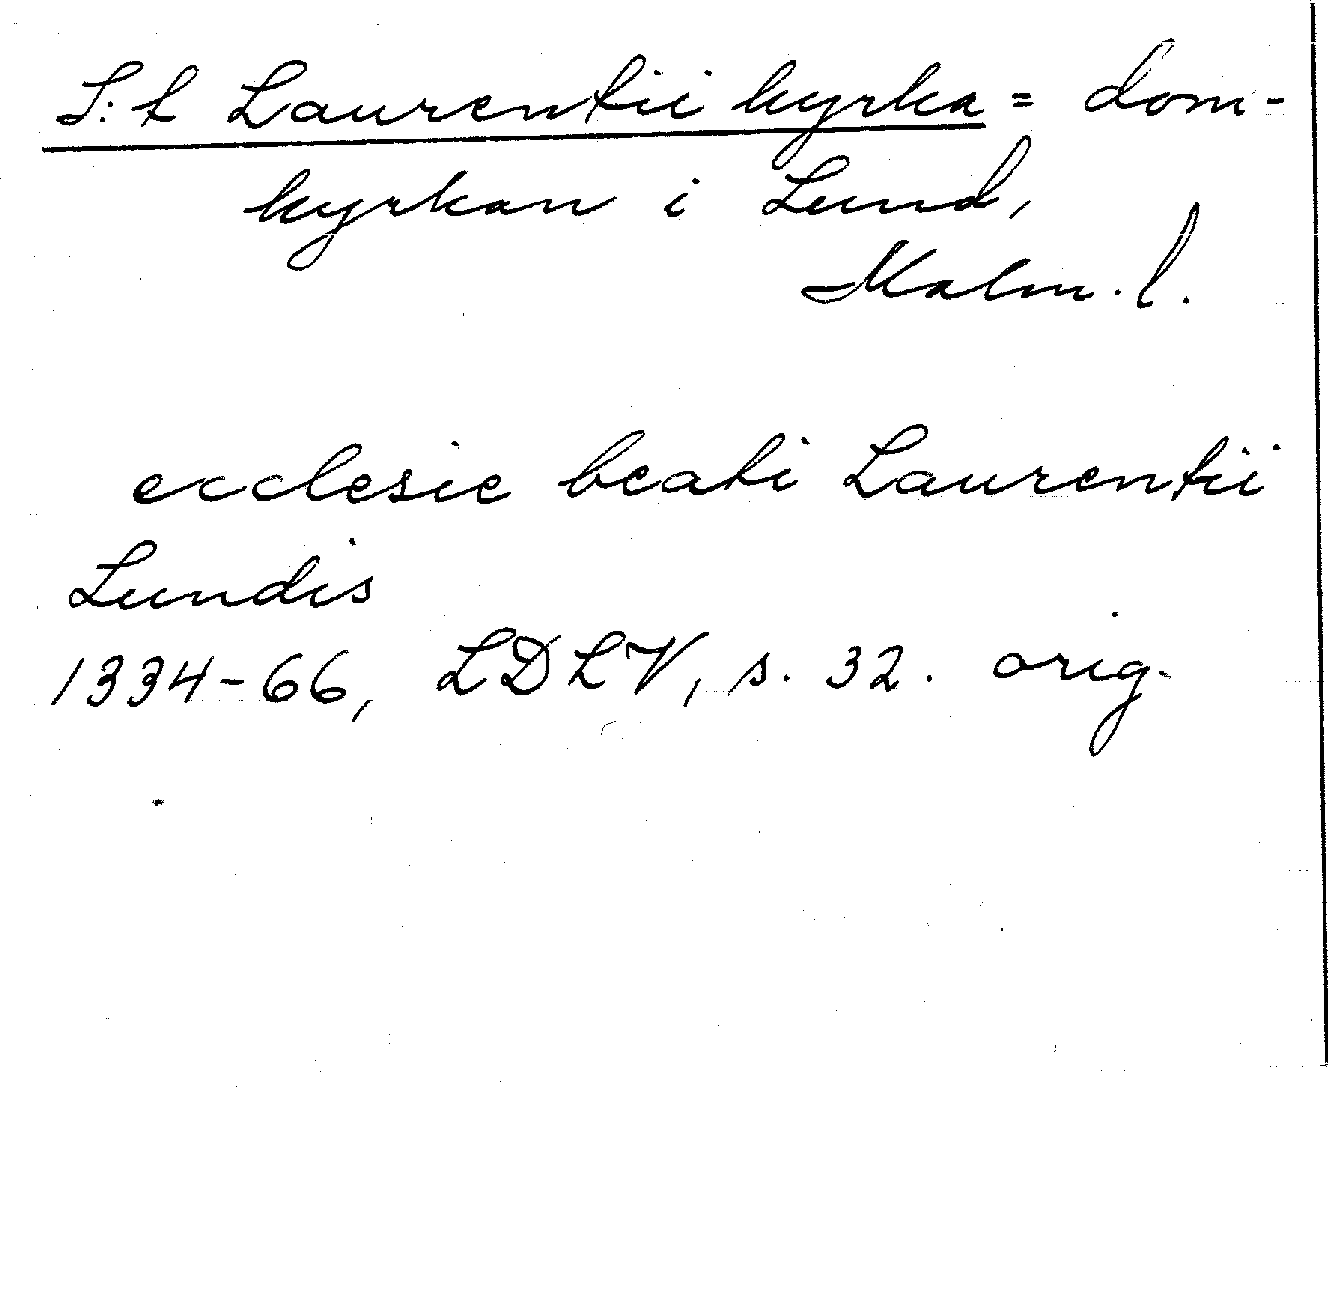 S:t Laurentii kyrka = dom-
kyrkan i Lund,
Malm. l.
ecclesie beati Laurentii
Lundis
1334-66, LDLV, s. 32. orig.